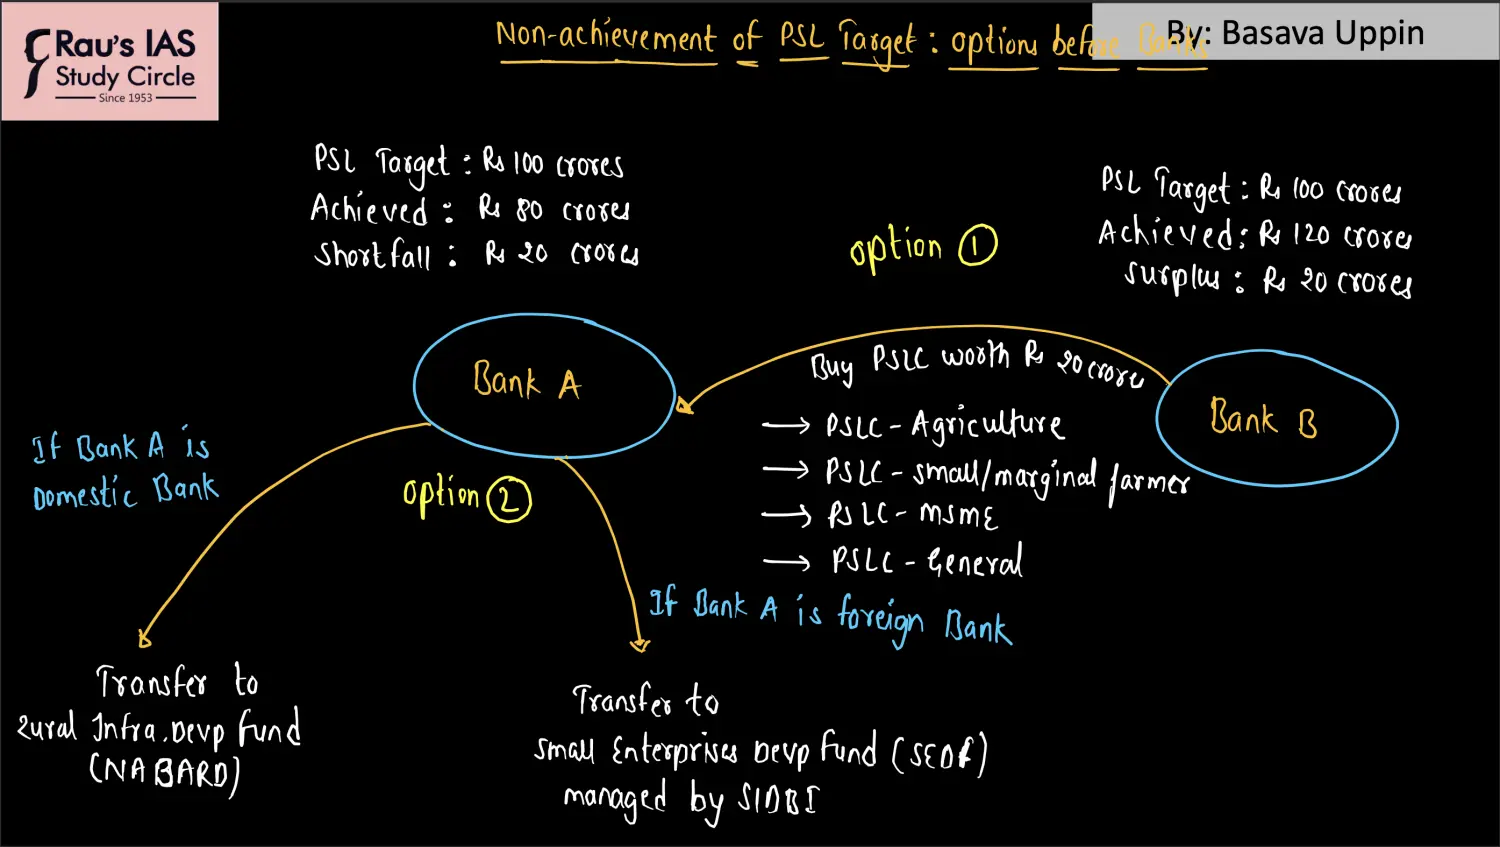 Rau's IAS
Study Circle
Since 1953
Non-achievement of PSL Target : options before Banks
By: Basava Uppin
PSL Target : Rs 100 crores
Achieved : Rs 80 crores
Shortfall : Rs 20 crores
option 1
PSL Target : Rs 100 crores
Achieved : Rs 120 crores
Surplus : Rs 20 crores
Bank A
Buy PSLC worth Rs 20 crore
Bank B
→ PSLC - Agriculture
→ PSLC - small/marginal farmer
→ PSLC - MSME
→ PSLC - General
If Bank A is
Domestic Bank
option 2
If Bank A is foreign Bank
Transfer to
Rural Infra. Devp fund
(NABARD)
Transfer to
Small Enterprises Devp Fund (SEDF)
managed by SIDBI